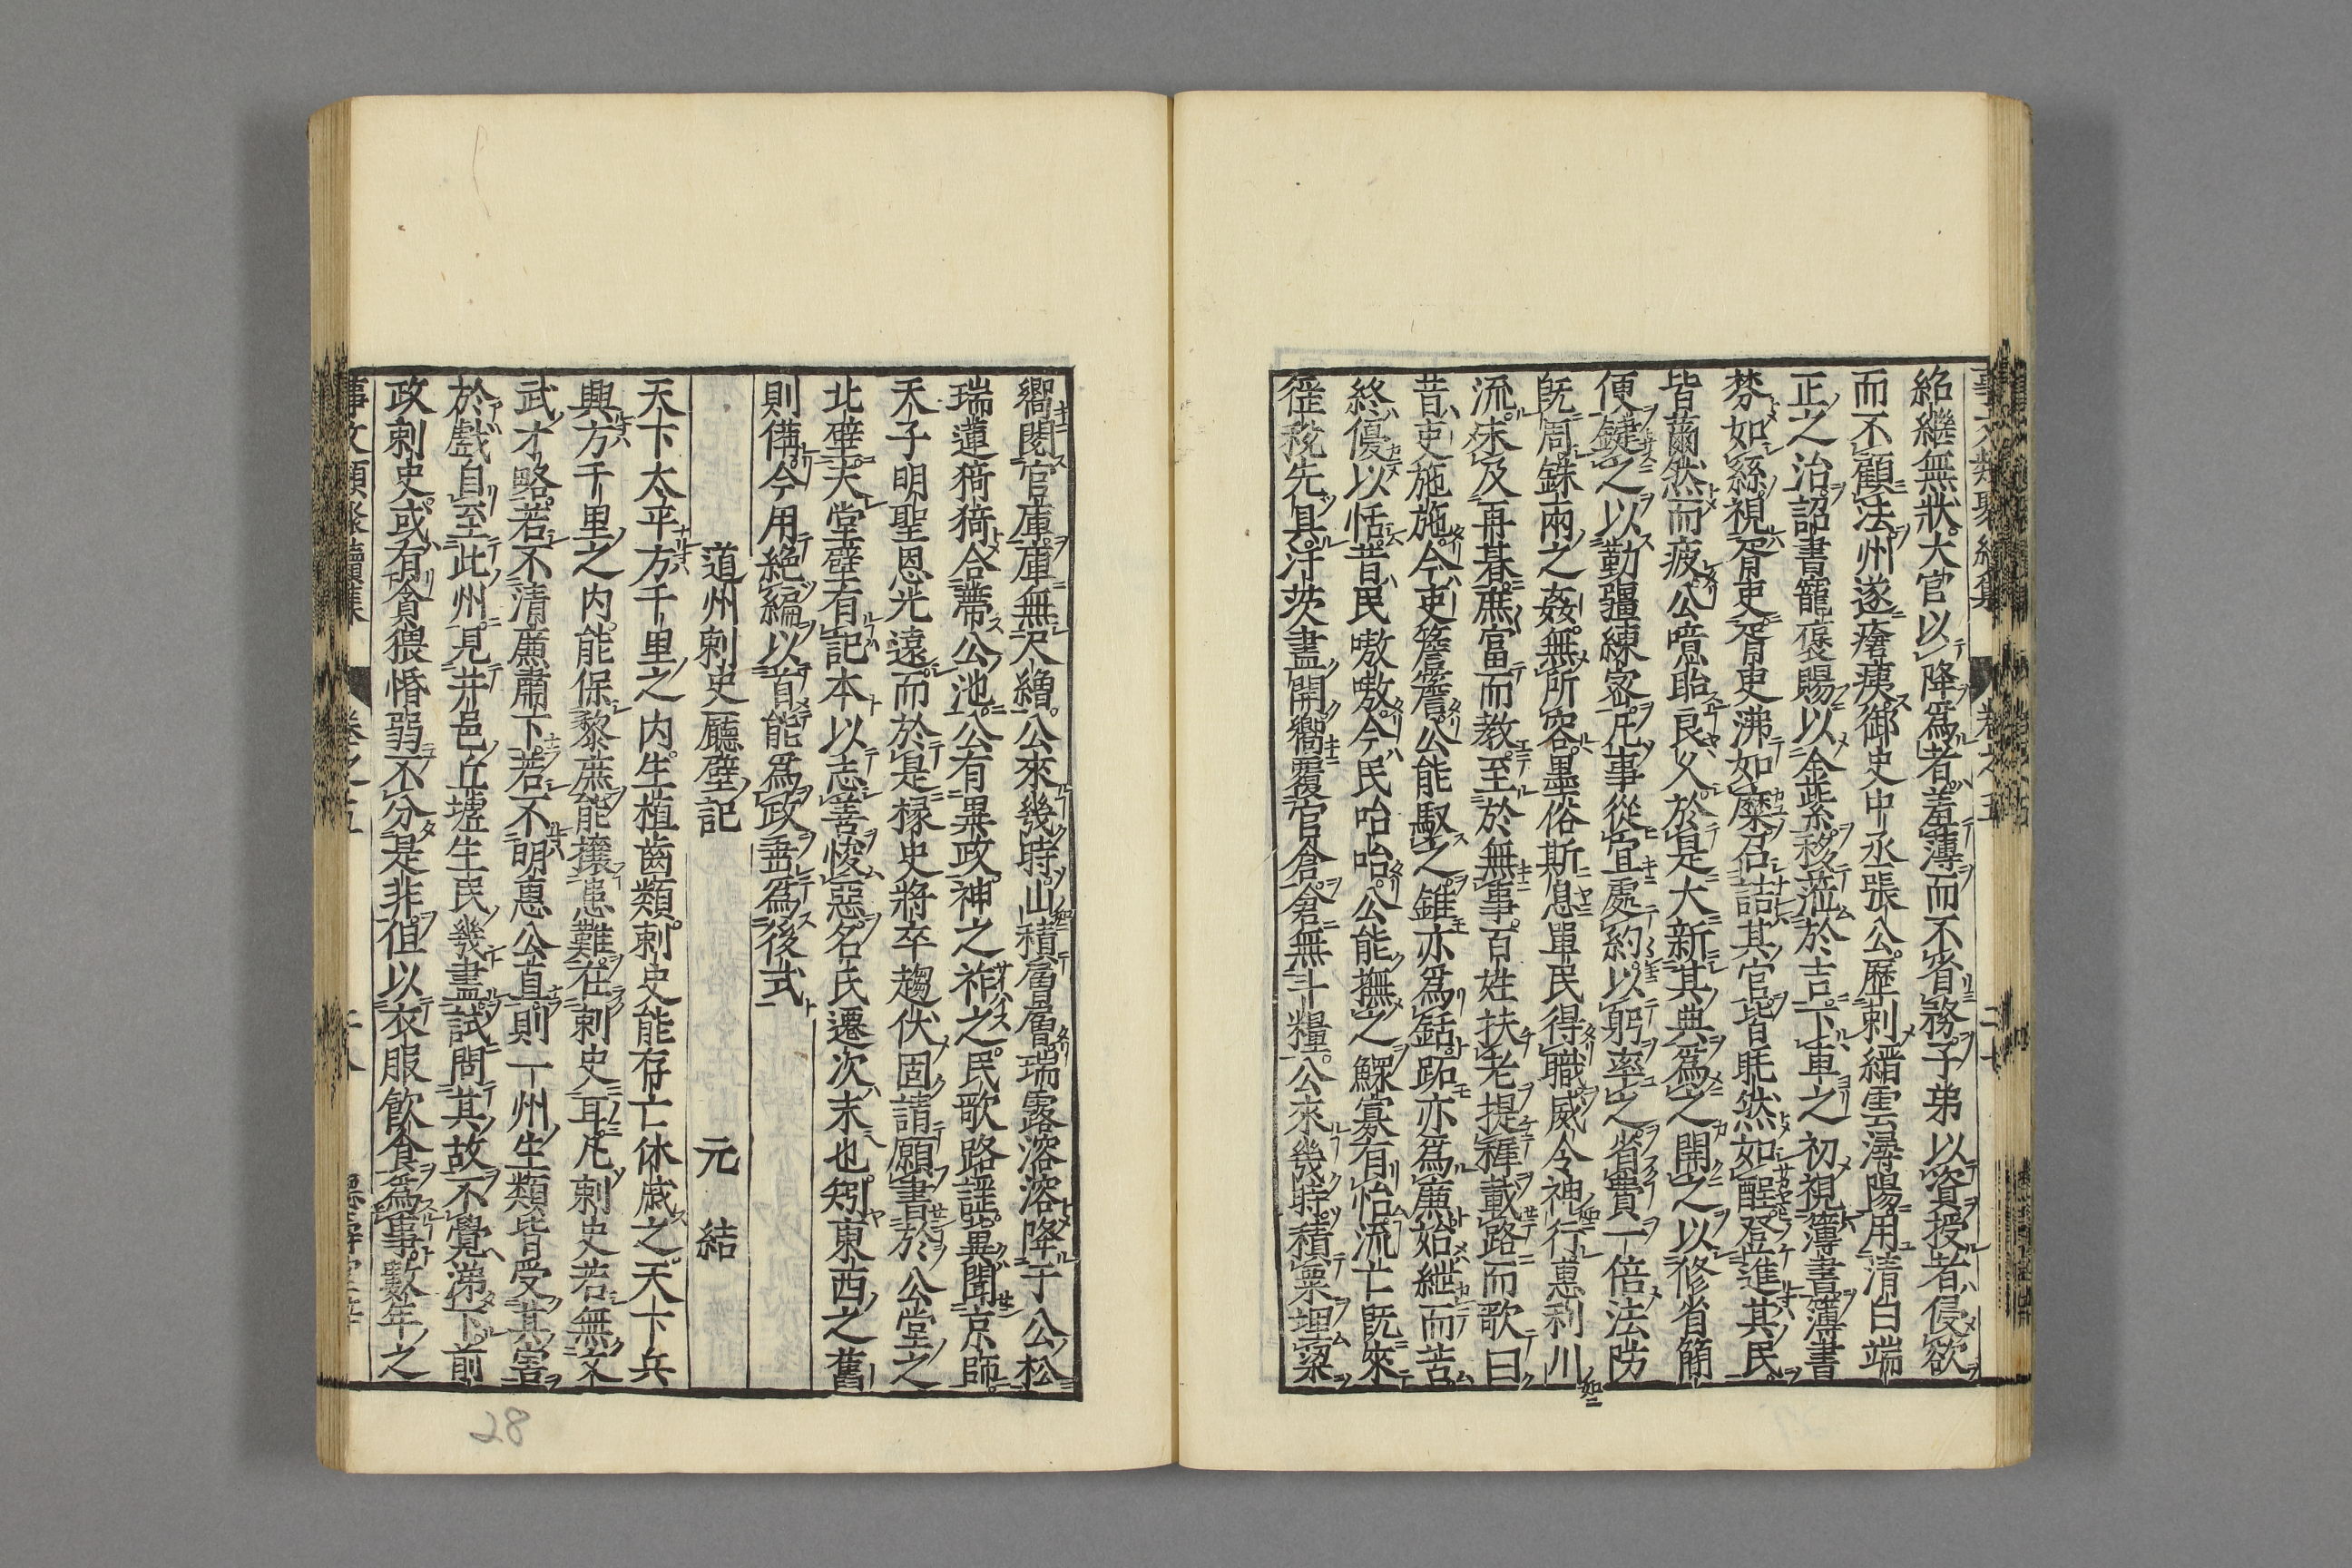 紹繼無狀大官以降爲者羞薄而不省務子弟以資授者侵欲
而不顧法州遂瘡痍御史中丞張公歷刺縉雲潯陽用清白端
正之治詔書寵褒賜以金紫移蒞於吉下車之初視簿書簿書
棼如絲視胥吏胥吏沸如糜召詰其官皆眊然如酲登進其民
皆薾然而疲公噫眙良久於是大新其典爲之開之以修省簡
便鍵之以勤疆練密凡事從宜處約以躬率之省費一倍法防
既周銖兩之姦無所容墨俗斯息單民得職威令神行惠利川
流未及再朞庶富而教至於無事百姓扶老提稺載路而歌曰
昔吏施施今吏簷簷公能馭之錐亦爲銛跖亦爲廉始紲而苦
終優以恬昔民嗷嗷今民咍咍公能撫之鰥寡有怡流亡既來
徑稅先具汙茨盡開嚮覆官倉倉無斗糧公來幾時積粟埋梁
嚮閱官庫庫無尺繒公來幾時山積層層瑞露溶溶降于公松
瑞蓮猗猗合蔕公池公有異政神之祚之民歌路謡異聞京師
天子明聖恩光遠而於是椽史將卒趨伏固請願書於公堂之
北壁夫堂壁有記本以志善悛惡名氏遷次末也矧東西之舊
則備今用絶編以首能爲政垂爲後式
道州刺史廳壁記 元 結
天下太平方千里之内生植齒類刺史能存亡休戚之天下兵
興方千里之内能保黎庶能攘患難在刺史耳凡刺史若無文
武才略若不清廉肅下若不明惠公直則一州生類皆受其害
於戲自至此州見井邑丘墟生民幾盡試問其故不覺涕下前
政刺史或有貪猥惛弱不分是非但以衣服飲食爲事數年之
事文類聚續集 卷之五
28